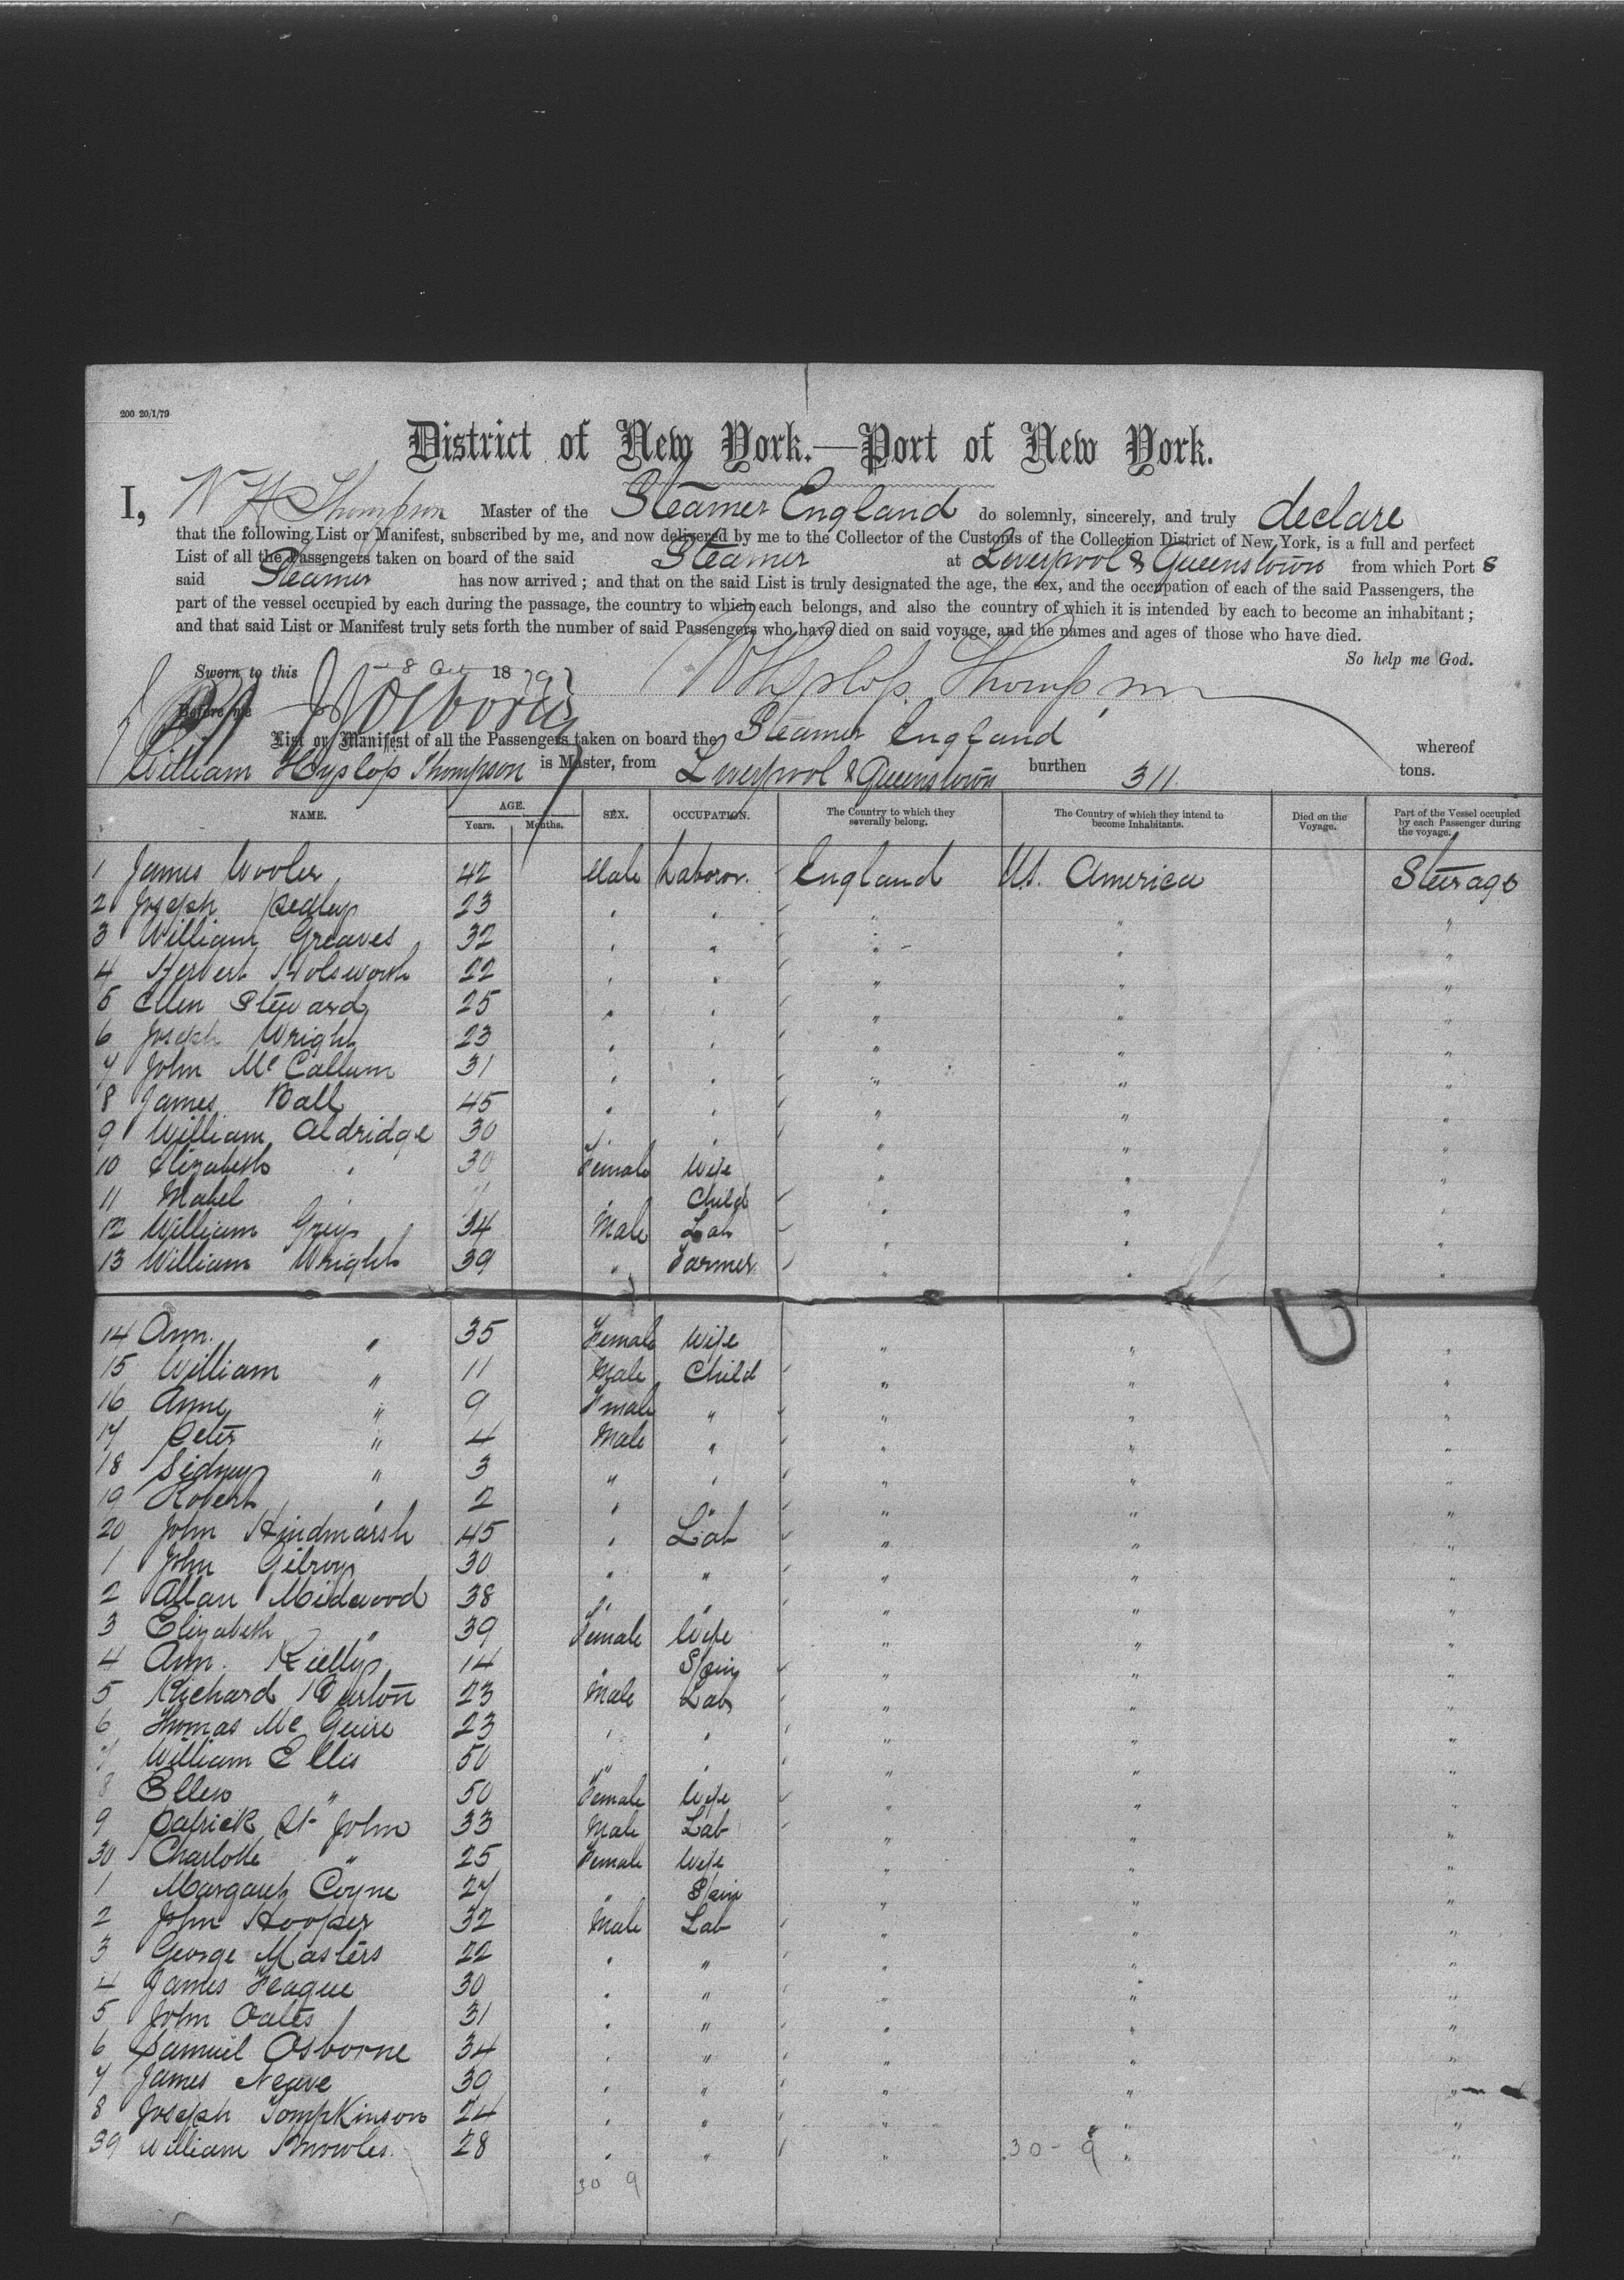 200 20/1/79
District of New York.—Port of New York.
I, W H Thompson Master of the Steamer England do solemnly, sincerely, and truly declare
that the following List or Manifest, subscribed by me, and now delivered by me to the Collector of the Customs of the Collection District of New York, is a full and perfect
List of all the Passengers taken on board of the said Steamer at Liverpool & Queenstown from which Port s
said Steamer has now arrived; and that on the said List is truly designated the age, the sex, and the occupation of each of the said Passengers, the
part of the vessel occupied by each during the passage, the country to which each belongs, and also the country of which it is intended by each to become an inhabitant;
and that said List or Manifest truly sets forth the number of said Passengers who have died on said voyage, and the names and ages of those who have died.
So help me God.
Sworn to this 8 1879 WHyslop Thompson
Before me
List or Manifest of all the Passengers taken on board the Steamer England whereof
William Hyslop Thompson is Master, from Liverpool & Queenstown burthen 311 tons.
NAME. AGE. Years. Months. SEX. OCCUPATION. The Country to which they severally belong. The Country of which they intend to become Inhabitants. Died on the Voyage. Part of the Vessel occupied by each Passenger during the voyage.
1 James Wooler 42 Male Laborer. England U.S. America Steerage
2 Joseph Pedley 23 " " " " "
3 William Greaves 32 " " " " "
4 Herbert Holsworth 22 " " " " "
5 Ellen Steward 25 " " " " "
6 Joseph Wright 23 " " " " "
7 John McCallum 31 " " " " "
8 James Ball 45 " " " " "
9 William Aldridge 30 " " " " "
10 Elizabeth " 30 Female Wife " " "
11 Mabel " " Child " " "
12 William Grey 34 Male Lab " " "
13 William Wright 39 " Farmer " " "
14 Ann " 35 Female Wife " " "
15 William " 11 Male Child " " "
16 Anne " 9 Female " " " "
17 Peter " 4 Male " " " "
18 Sidney " 3 " " " " "
19 Robert " 2 " " " " "
20 John Hindmarsh 45 " Lab " " "
1 John Gilroy 30 " " " " "
2 Allan Midwood 38 " " " " "
3 Elizabeth " 39 Female Wife " " "
4 Ann Rielly 14 " Spin " " "
5 Richard Burton 23 Male Lab " " "
6 Thomas McGuire 23 " " " " "
7 William Ellis 50 " " " " "
8 Ellen " 50 Female Wife " " "
9 Patrick St John 33 Male Lab " " "
30 Charlotte " 25 Female Wife " " "
1 Margaret Coyne 27 " Spin " " "
2 John Hooper 32 Male Lab " " "
3 George Masters 22 " " " " "
4 James Teague 30 " " " " "
5 John Oates 31 " " " " "
6 Samuel Osborne 34 " " " " "
7 James Neave 39 " " " " "
8 Joseph Tompkinson 24 " " " " "
39 William Knowles 28 " " " " "
30 9 30 - 9